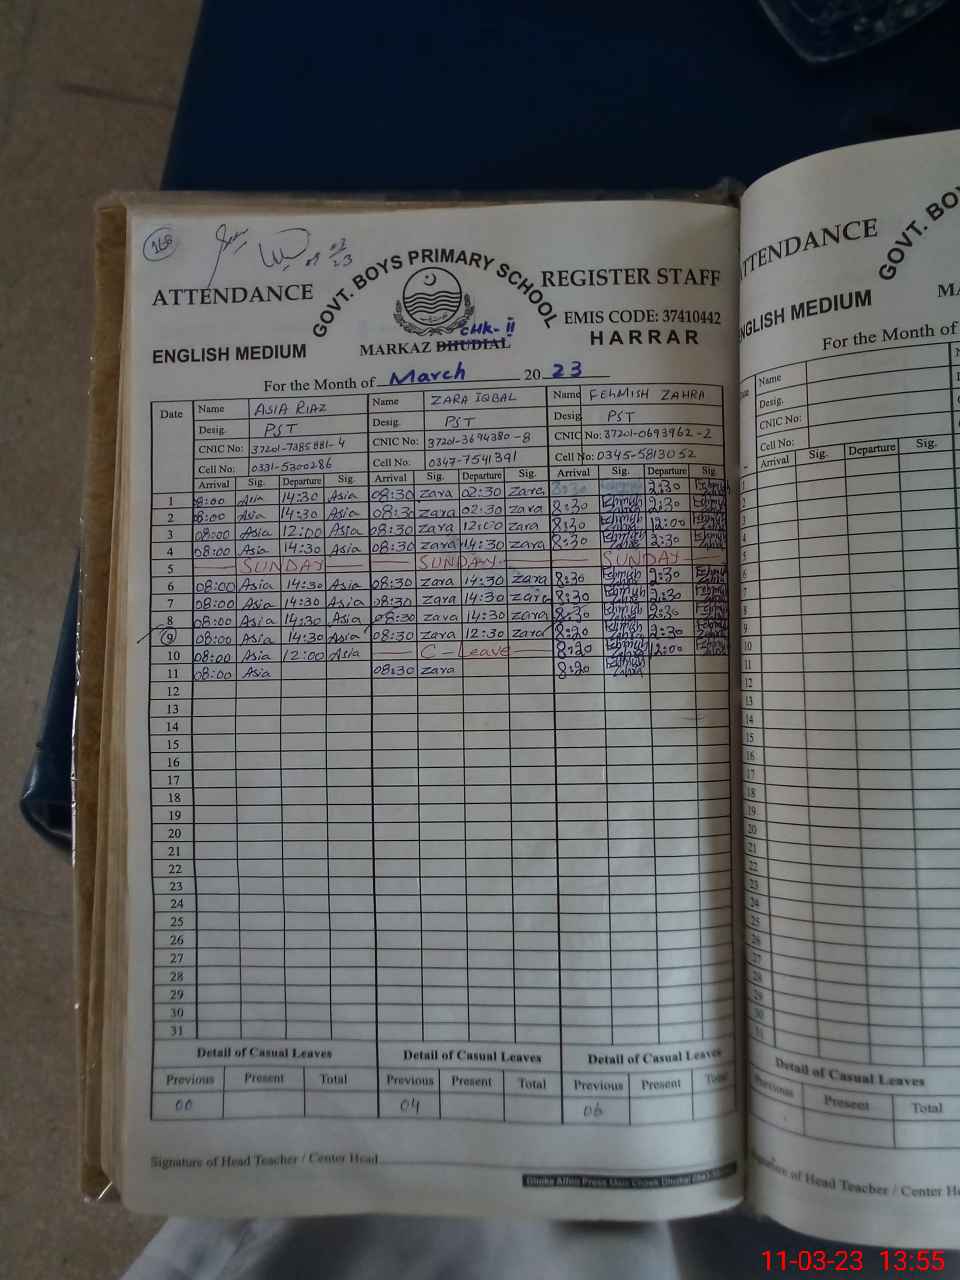 168
03
23
ATTENDANCE
GOVT. BOYS PRIMARY SCHOOL
REGISTER STAFF
ENGLISH MEDIUM
EMIS CODE: 37410442
CHK-II
MARKAZ DHUDIAL
HARRAR
For the Month of March 2023
Date Name ASIA RIAZ Name ZARA IQBAL Name FEHMISH ZAHRA
Desig. PST Desig. PST Desig. PST
CNIC No: 37201-7385881-4 CNIC No: 37201-3694380-8 CNIC No: 37201-0693962-2
Cell No: 0331-5300286 Cell No: 0347-7541391 Cell No: 0345-5813052
Arrival Sig. Departure Sig. Arrival Sig. Departure Sig. Arrival Sig. Departure Sig.
1 08:00 Asia 14:30 Asia 08:30 Zara 02:30 Zara 8:30 2:30 Fehmish Zahra
2 08:00 Asia 14:30 Asia 08:30 Zara 02:30 Zara 8:30 Fehmish Zahra 2:30 Fehmish Zahra
3 08:00 Asia 12:00 Asia 08:30 Zara 12:00 Zara 8:30 Fehmish Zahra 12:00 Fehmish Zahra
4 08:00 Asia 14:30 Asia 08:30 Zara 14:30 Zara 8:30 Fehmish Zahra 2:30 Fehmish Zahra
5 SUNDAY SUNDAY SUNDAY
6 08:00 Asia 14:30 Asia 08:30 Zara 14:30 Zara 8:30 Fehmish Zahra 2:30 Fehmish Zahra
7 08:00 Asia 14:30 Asia 08:30 Zara 14:30 Zara 8:30 Fehmish Zahra 2:30 Fehmish Zahra
8 08:00 Asia 14:30 Asia 08:30 Zara 14:30 Zara 8:30 Fehmish Zahra 2:30 Fehmish Zahra
9 08:00 Asia 14:30 Asia 08:30 Zara 12:30 Zara 8:30 Fehmish Zahra 2:30 Fehmish Zahra
10 08:00 Asia 12:00 Asia C-Leave 8:30 Fehmish Zahra 12:00 Fehmish Zahra
11 08:00 Asia 08:30 Zara 8:30 Fehmish Zahra
12
13
14
15
16
17
18
19
20
21
22
23
24
25
26
27
28
29
30
31
Detail of Casual Leaves Detail of Casual Leaves Detail of Casual Leaves
Previous Present Total Previous Present Total Previous Present Total
00 04 06
Signature of Head Teacher / Center Head
ATTENDANCE
GOVT. BOY
ENGLISH MEDIUM
MA
For the Month of
Name
Desig.
CNIC No:
Cell No:
Arrival Sig. Departure Sig.
1
2
3
4
5
6
7
8
9
10
11
12
13
14
15
16
17
18
19
20
21
22
23
24
25
26
27
28
29
30
31
Detail of Casual Leaves
Previous Present Total
Signature of Head Teacher / Center He
11-03-23 13:55